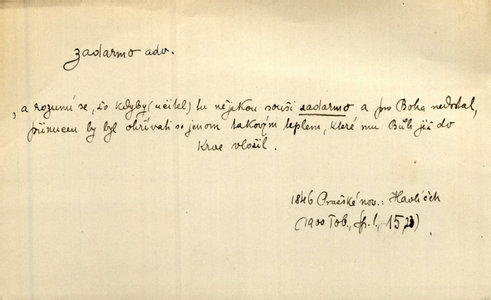 zadarmo adv.
, a rozumí se, že kdyby (učitel) tu nějakou souši zadarmo a pro Boha nedostal,
přinucen by byl ohřívati se jenom takovým teplem, které mu Bůh již do
krve vložil.
1846 Pražské nov.: Havlíček
(1900 Tob., I., 15)